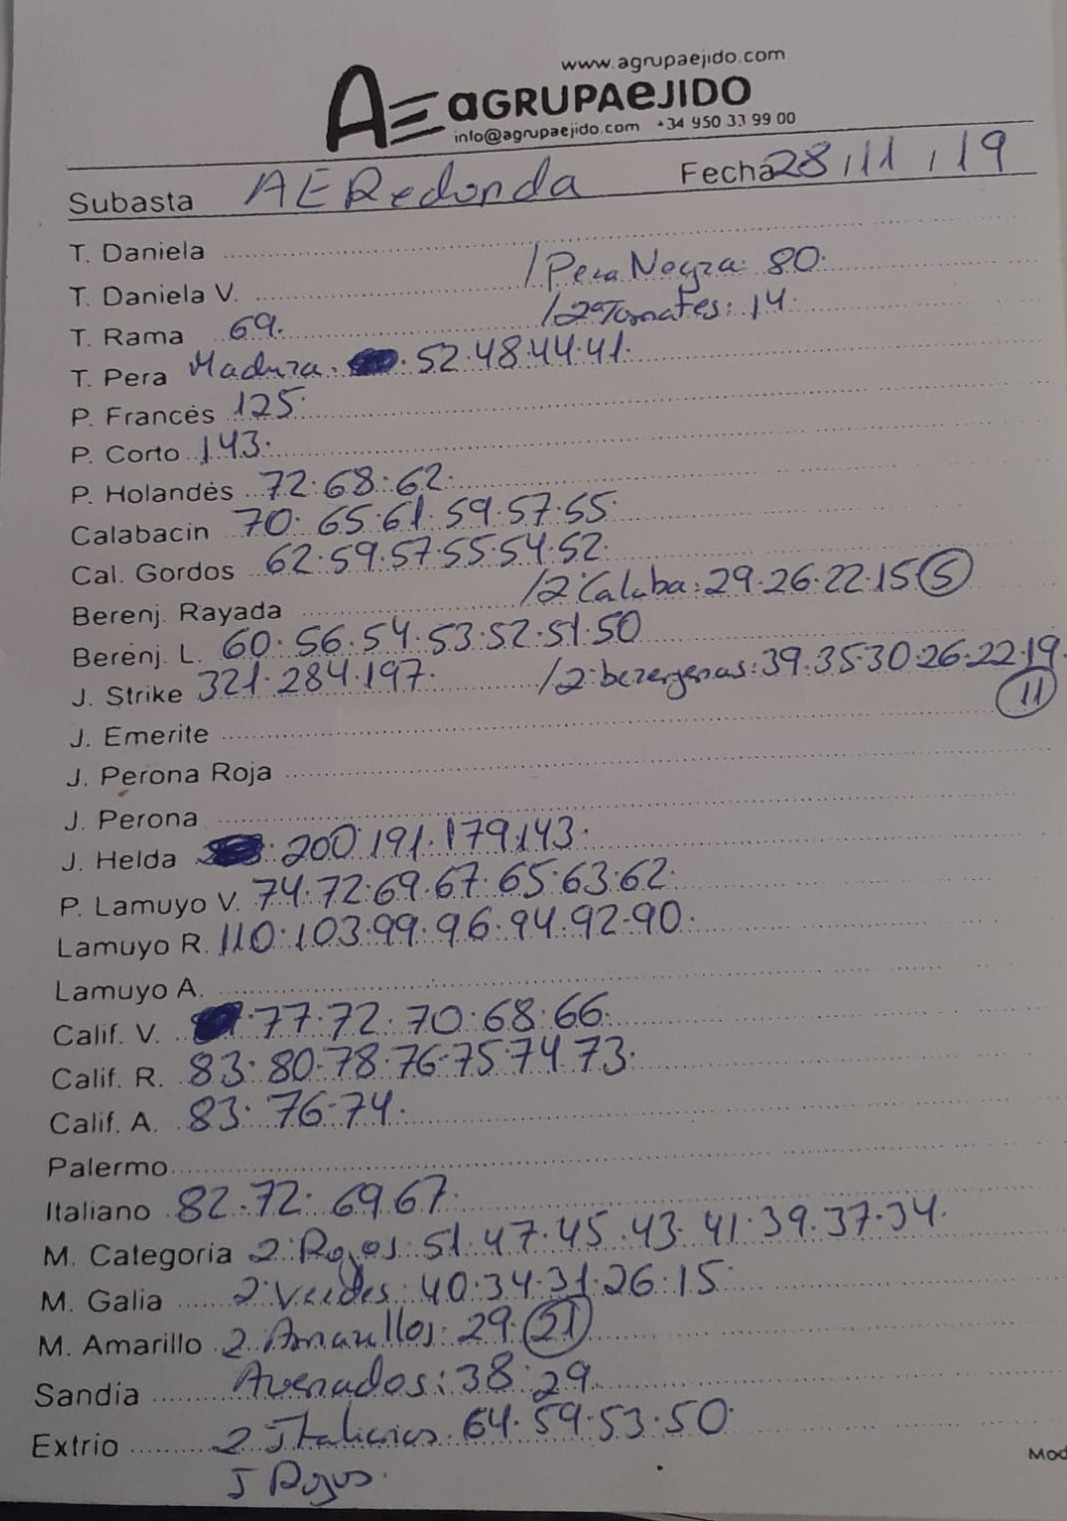 www.agrupaejido.com
AE aGRUPAeJIDO
info@agrupaejido.com +34 950 33 99 00
Subasta AE Redonda Fecha 28/11/19
T. Daniela
/Pera Negra: 80.
T. Daniela V.
/2ªTomates: 14.
T. Rama 69.
T. Pera Madura. 52.48.44.41.
P. Francés 125.
P. Corto 143.
P. Holandés 72.68.62.
Calabacin 70.65.61.59.57.55.
Cal. Gordos 62.59.57.55.54.52.
/2ªCalaba: 29.26.22.15 5
Berenj. Rayada
Berenj. L. 60.56.54.53.52.51.50
/2ªberergenas: 39.35.30.26.22.19.
11
J. Strike 321.284.197.
J. Emerite
J. Perona Roja
J. Perona
J. Helda 200.191.179.143.
P. Lamuyo V. 74.72.69.67.65.63.62.
Lamuyo R. 110.103.99.96.94.92.90.
Lamuyo A.
Calif. V. 77.72.70.68.66.
Calif. R. 83.80.78.76.75.74.73.
Calif. A. 83.76.74.
Palermo
Italiano 82.72.69.67.
M. Categoria 2ªRojos: 51.47.45.43.41.39.37.34.
M. Galia 2ªVerdes: 40.34.31.26.15.
M. Amarillo 2ªAmarillos: 29. 21
Sandia Asenados: 38.29.
Extrio 2 Italianos. 64.59.53.50.
J Rojos.
Mod